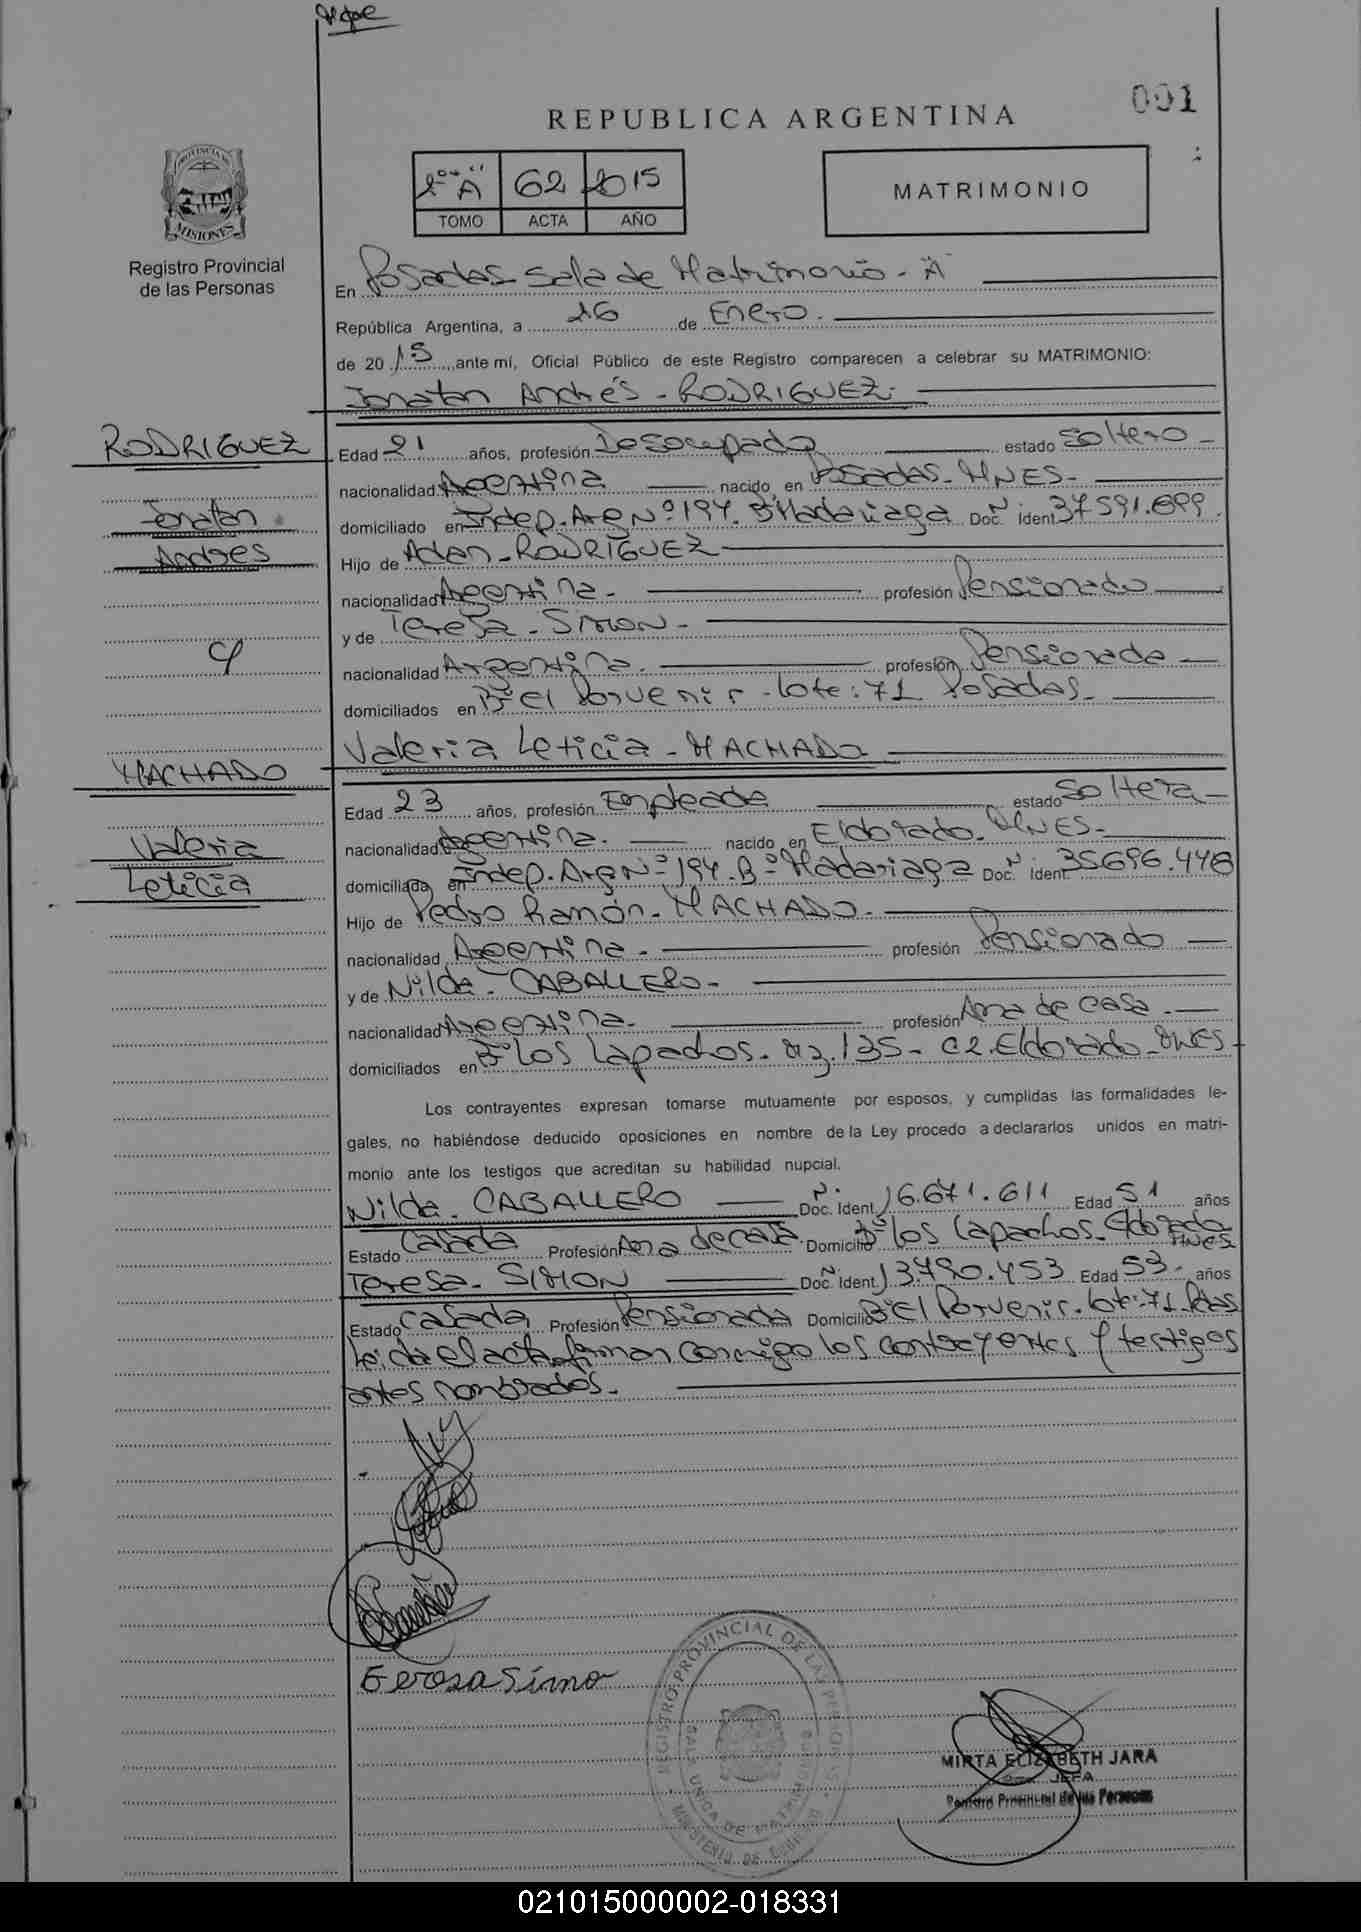 001
REPUBLICA ARGENTINA
2º "A" 62 2015
TOMO ACTA AÑO
MATRIMONIO
PROVINCIA DE MISIONES
Registro Provincial
de las Personas
En Posadas Sala de Matrimonio - "A"
República Argentina, a 26 de Enero.
de 20 15 ante mí, Oficial Público de este Registro comparecen a celebrar su MATRIMONIO:
Jonatan Andrés - RODRIGUEZ.
RODRIGUEZ
Jonatan
Andres
Edad 21 años, profesión Desocupado estado Soltero -
nacionalidad Argentina nacido en Posadas - MNES -
domiciliado en Indep. Arg Nº 194. Bº Madariaga Doc. N Ident 37591.699.
Hijo de Adan - RODRÍGUEZ
nacionalidad Argentina - profesión Pensionado
y de Teresa - SIMON -
nacionalidad Argentina. profesión Pensionada
domiciliados en Bº El Porvenir - lote: 71 Posadas -
c/
Valeria Leticia - MACHADO
MACHADO
Valeria
Leticia
Edad 23 años, profesión Empleada estado Soltera -
nacionalidad Argentina. nacido en Eldorado - MNES -
domiciliada en Indep. Arg Nº 194. Bº Madariaga Doc. N Ident 35696.448
Hijo de Pedro Ramón - MACHADO.
nacionalidad Argentina - profesión Pensionado
y de Nilda - CABALLERO -
nacionalidad Argentina. profesión Ama de casa.
domiciliados en Bº los Lapachos - Mz. 135 - C2. Eldorado - MNES
Los contrayentes expresan tomarse mutuamente por esposos, y cumplidas las formalidades le-
gales, no habiéndose deducido oposiciones en nombre de la Ley procedo a declararlos unidos en matri-
monio ante los testigos que acreditan su habilidad nupcial.
Nilda - CABALLERO Doc. N Ident 16.671.611 Edad 51 años
Estado Casada Profesión Ama de casa Domicilio Bº los Lapachos - Eldorado MNES
Teresa - SIMON Doc. N Ident 13.790.453 Edad 53 - años
Estado Casada Profesión Pensionada Domicilio Bº El Porvenir - lote: 71 - Pdas
Leida el acta firman conmigo los contrayentes y testigos
antes nombrados.
Teresa Simon
REGISTRO PROVINCIAL DE LAS PERSONAS
SALA UNICA DE MATRIMONIOS
MINISTERIO DE GOBIERNO
MIRTA ELIZABETH JARA
JEFA
Registro Provincial de las Personas
021015000002-018331